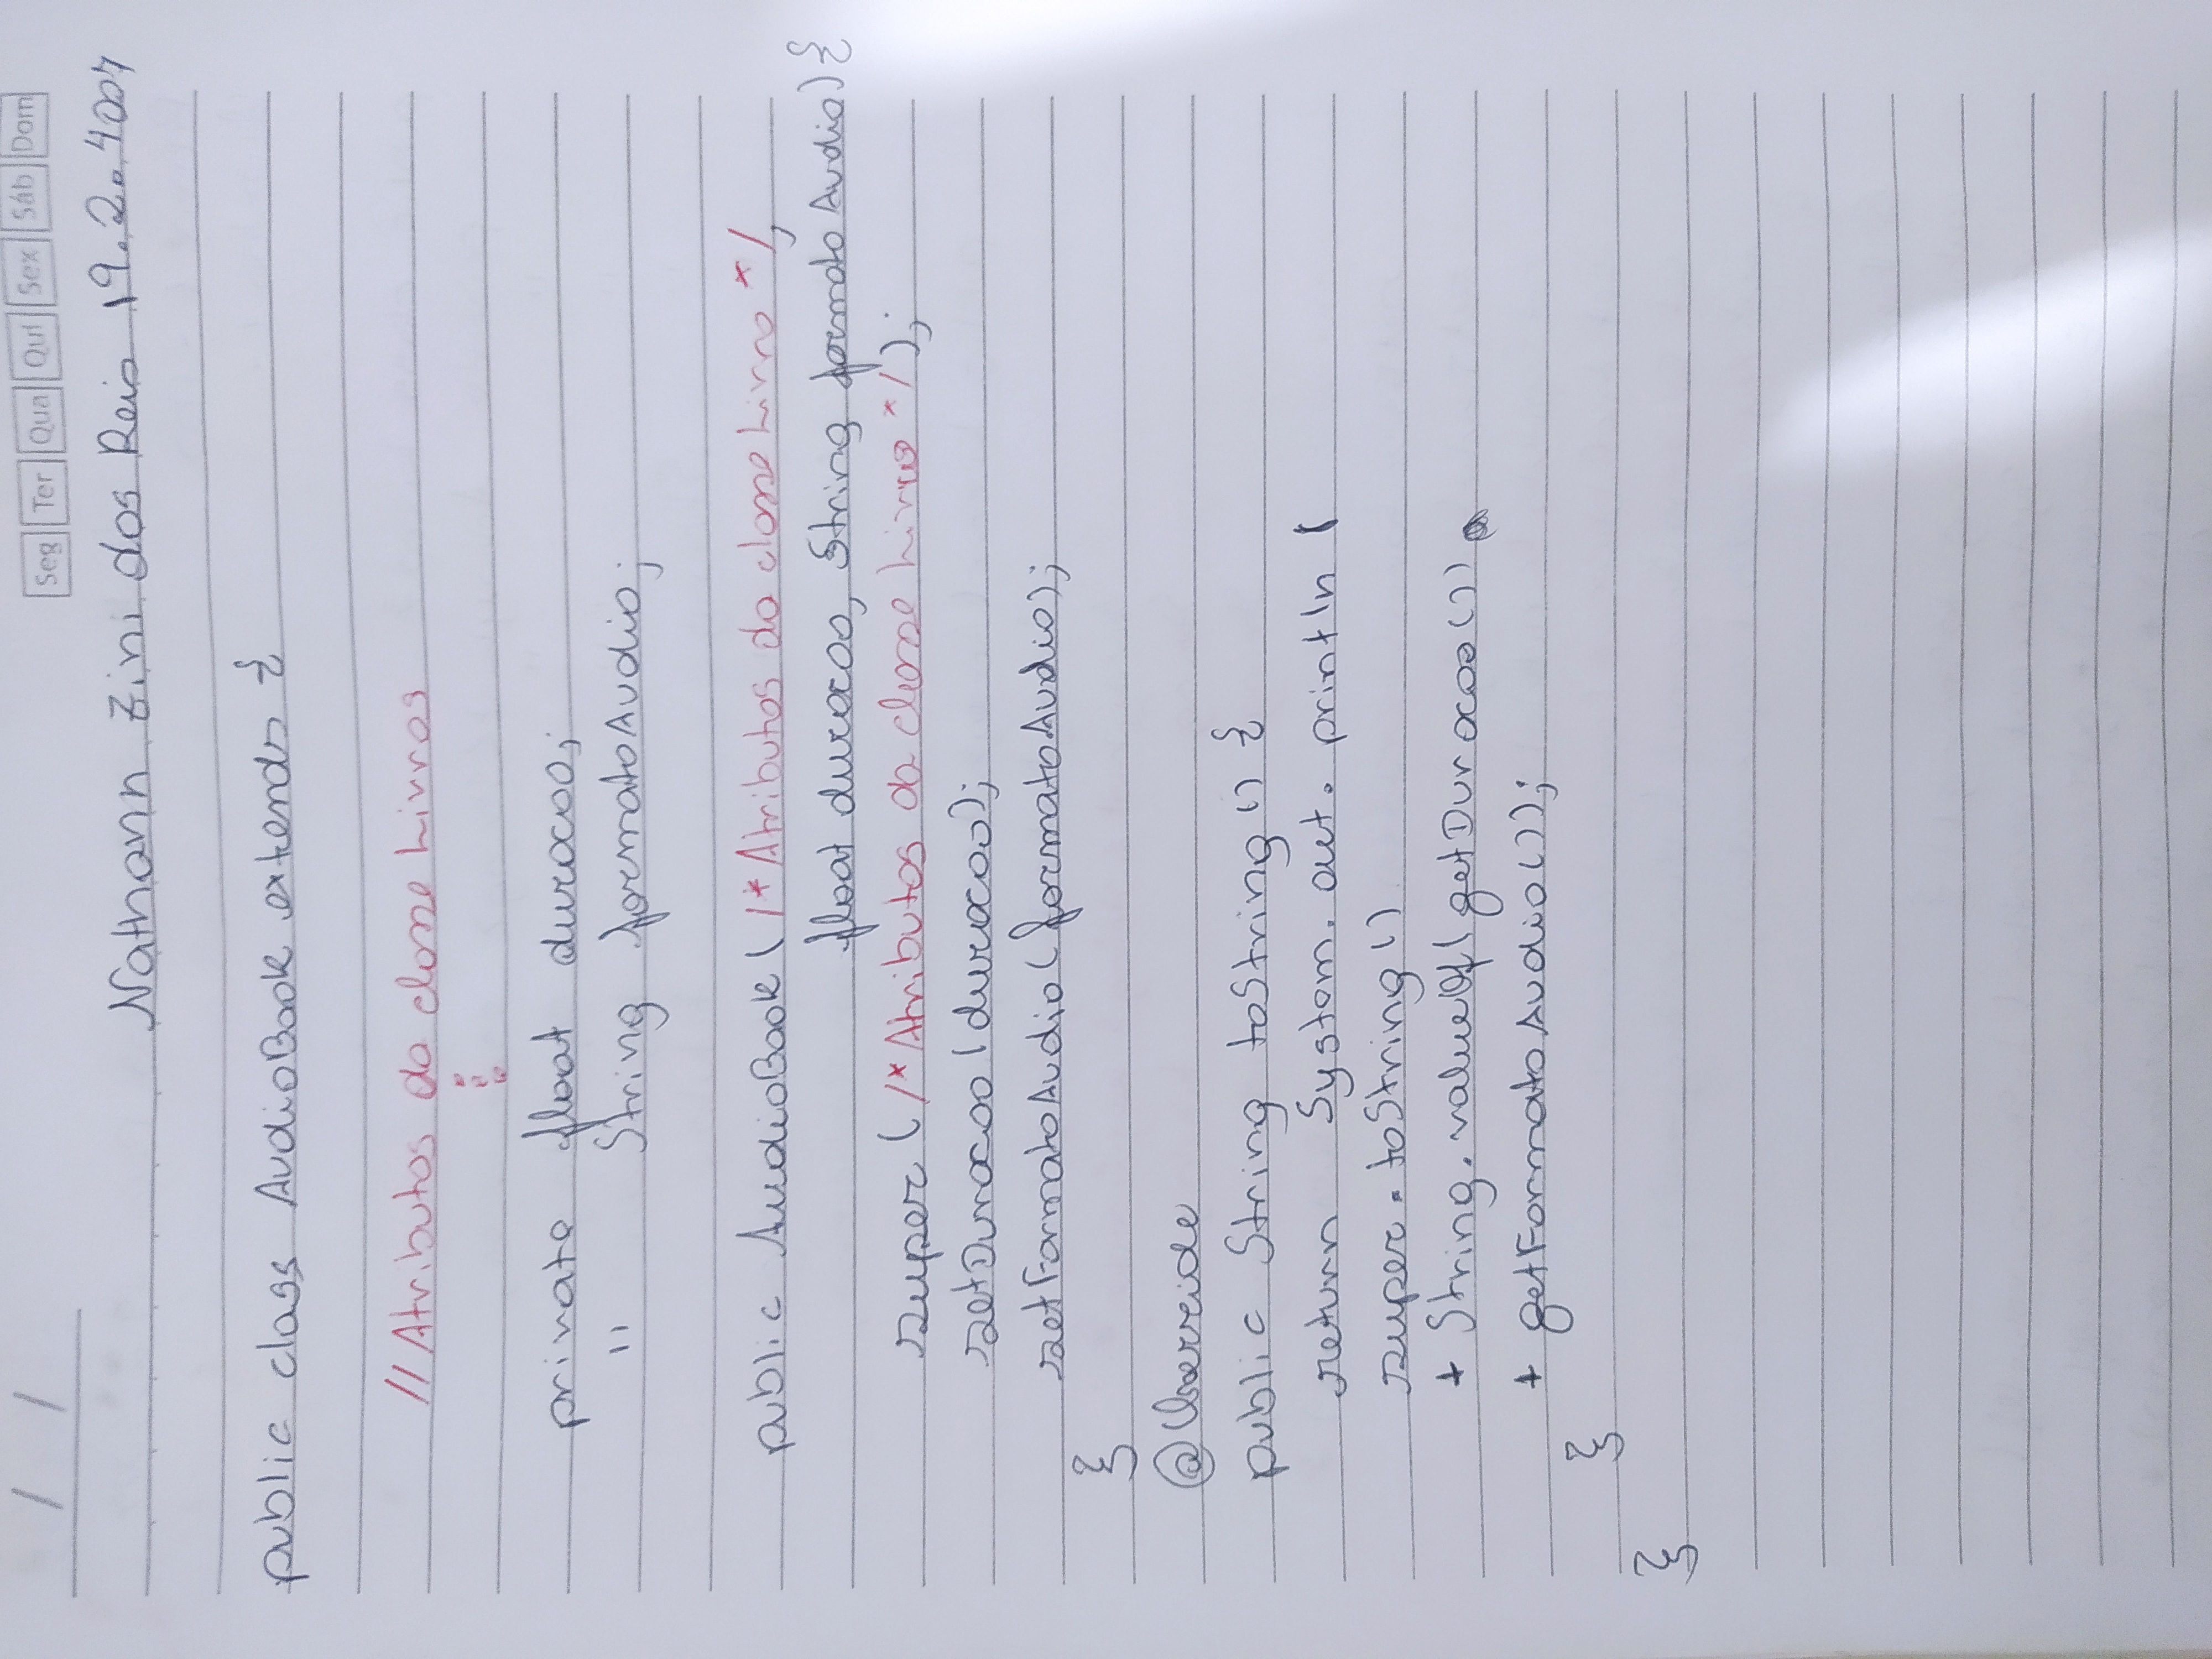 / /
Seg Ter Qua Qui Sex Sáb Dom
Nathann Zini dos Reis 19.2.4007
public class AudioBook extends {
//Atributos da classe Livros
⋮
private float duracao;
" String formatoAudio;
public AudioBook( /*Atributos da classe Livro */,
float duracao, String formato Audio) {
super ( /*Atributos da classe Livro */ );
setDuracao (duracao);
setFormatoAudio(formatoAudio);
}
@Override
public String toString() {
return System.out.println (
super.toString()
+ String.valueOf( getDuracao())
+ getFormatoAudio());
}
}